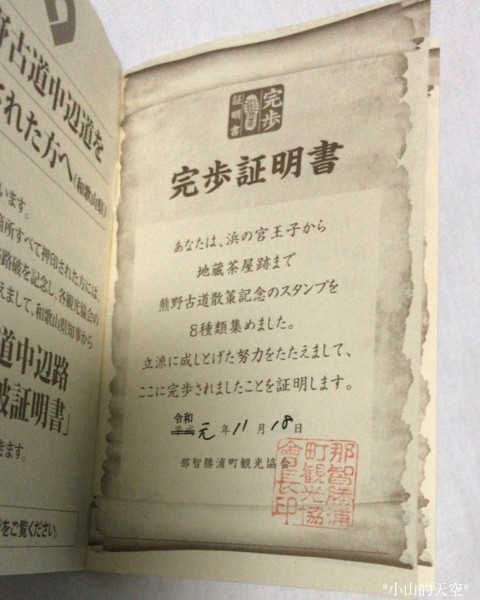 古道中辺道を
された方へ(和歌山県)
います。
箇所すべて押印された方には、
踏破を記念し、各観光協会の
えまして、和歌山県知事から
道中辺路
破証明書」
きます。
をご覧ください。
完歩
証明書
完歩証明書
あなたは、浜の宮王子から
地蔵茶屋跡まで
熊野古道散策記念のスタンプを
8種類集めました。
立派に成しとげた努力をたたえまして、
ここに完歩されましたことを証明します。
令和
平成 元 年 11 月 18 日
那智勝浦町観光協会
那智勝浦
町観光協
會長印
*小山的天空*